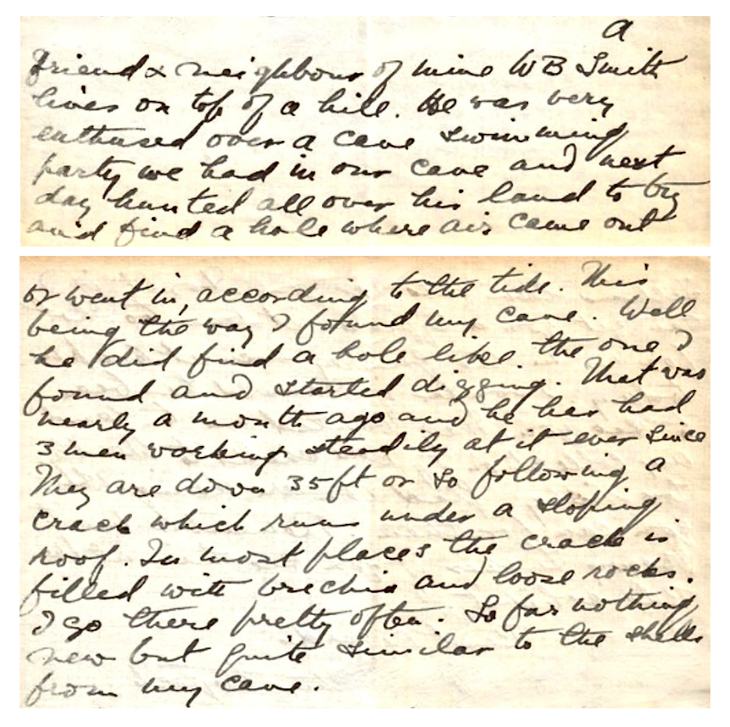 a
friend & neighbour of mine W B Smith
lives on top of a hill. He was very
enthused over a cave swimming
party we had in our cave and next
day hunted all over his land to try
and find a hole where air came out
or went in, according to the tide. This
being the way I found my cave. Well
he did find a hole like the one I
found and started digging. That was
nearly a month ago and he has had
3 men working steadily at it ever since
They are down 35 ft or so following a
crack which runs under a sloping
roof. In most places the crack is
filled with brechia and loose rocks.
I go there pretty often. So far nothing
new but quite similar to the shells
from my cave.